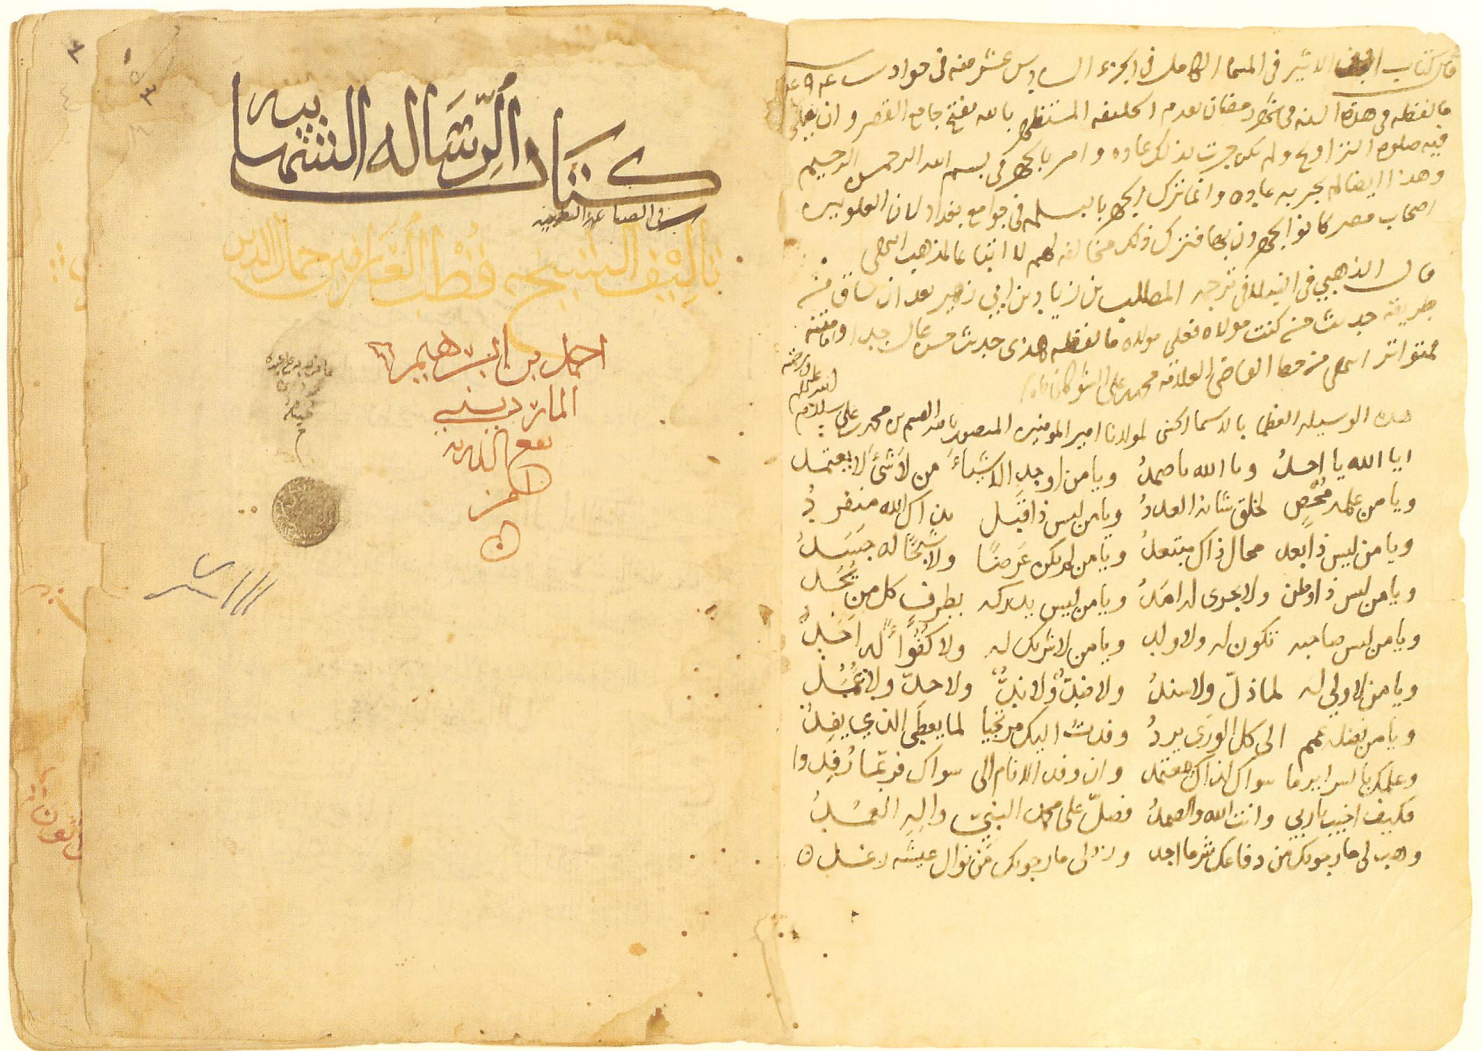 قال في كتاب ابن الاثير في المسما الكامل في الجزء السادس عشر منه في حوادث
ما لفظه في هذه السنه في شهر رمضان تقدم الخليفه المستظهر بالله بفتح جامع القصر وان يصلى
فيه صلوه التراويح ولم تكن جرت بذلك عاده وامر بالجهر في بسم الله الرحمن الرحيم
وهذا ايضا لم تجر به عاده وانما ترك الجهر بالبسمله في جوامع بغداد لان العلويين
اصحاب مصر كانوا يجهرون بها فترك ذلك مخالفه لهم لا اتباعا لمذهب انتهى
قال الذهبي في النبلا في ترجمه المطلب بن زياد بن ابي زهير بعد ان ساق من
طريقه حديث من كنت مولاه فعلي مولاه ما لفظه هذا حديث حسن عال جدا ومتنه
متواتر انتهى من خط القاضي العلامه محمد بن علي الشوكاني
هذه الوسيله العظما بالاسما الحسنى لمولانا امير المومنين المنصور بالله القسم بن محمد
ايا الله يا احد ويا الله يا صمد ويا من اوجد الاشياء من لا شئ لا يعتمد
ويا من علمه محص لخلق شانه العدد ويا من ليس ذا قبل بذاك الله منفرد
ويا من ليس ذا بعد محال ذاك مبتعد ويا من لم يكن عرضا ولا شبحا له جسد
ويا من ليس ذا وطن ولا يجرى له امد ويا من ليس يدركه بطرف كل من يجد
ويا من ليس صاحبه تكون له ولا ولد ويا من لا شريك له ولا كفوا له احد
ويا من لا ولي له لما ذل ولا سند ولا ضد ولا ند ولا حد ولا عمد
ويا من فضله عمم الى كل الورى يرد وفدت اليك مرتجيا لما يعطى الذي يفد
وعلمك بالسراير ما سواك لذاك معتمد وان وفد الانام الى سواك فربما رفدوا
فكيف اخيب يا ربي وانت الله والصمد فصل على محمد النبي واله العمد
وهب لي ما رجوتك من دفاعك شر ما اجد وزد لي ما رجوتك من نوال عيشه رغد
كتاب الرساله الشهابيه
في الصناعه الطبيه
تاليف الشيخ قطب العارفين جمال الدين
احمد بن ابرهيم
المارديني
نفع الله به
امين